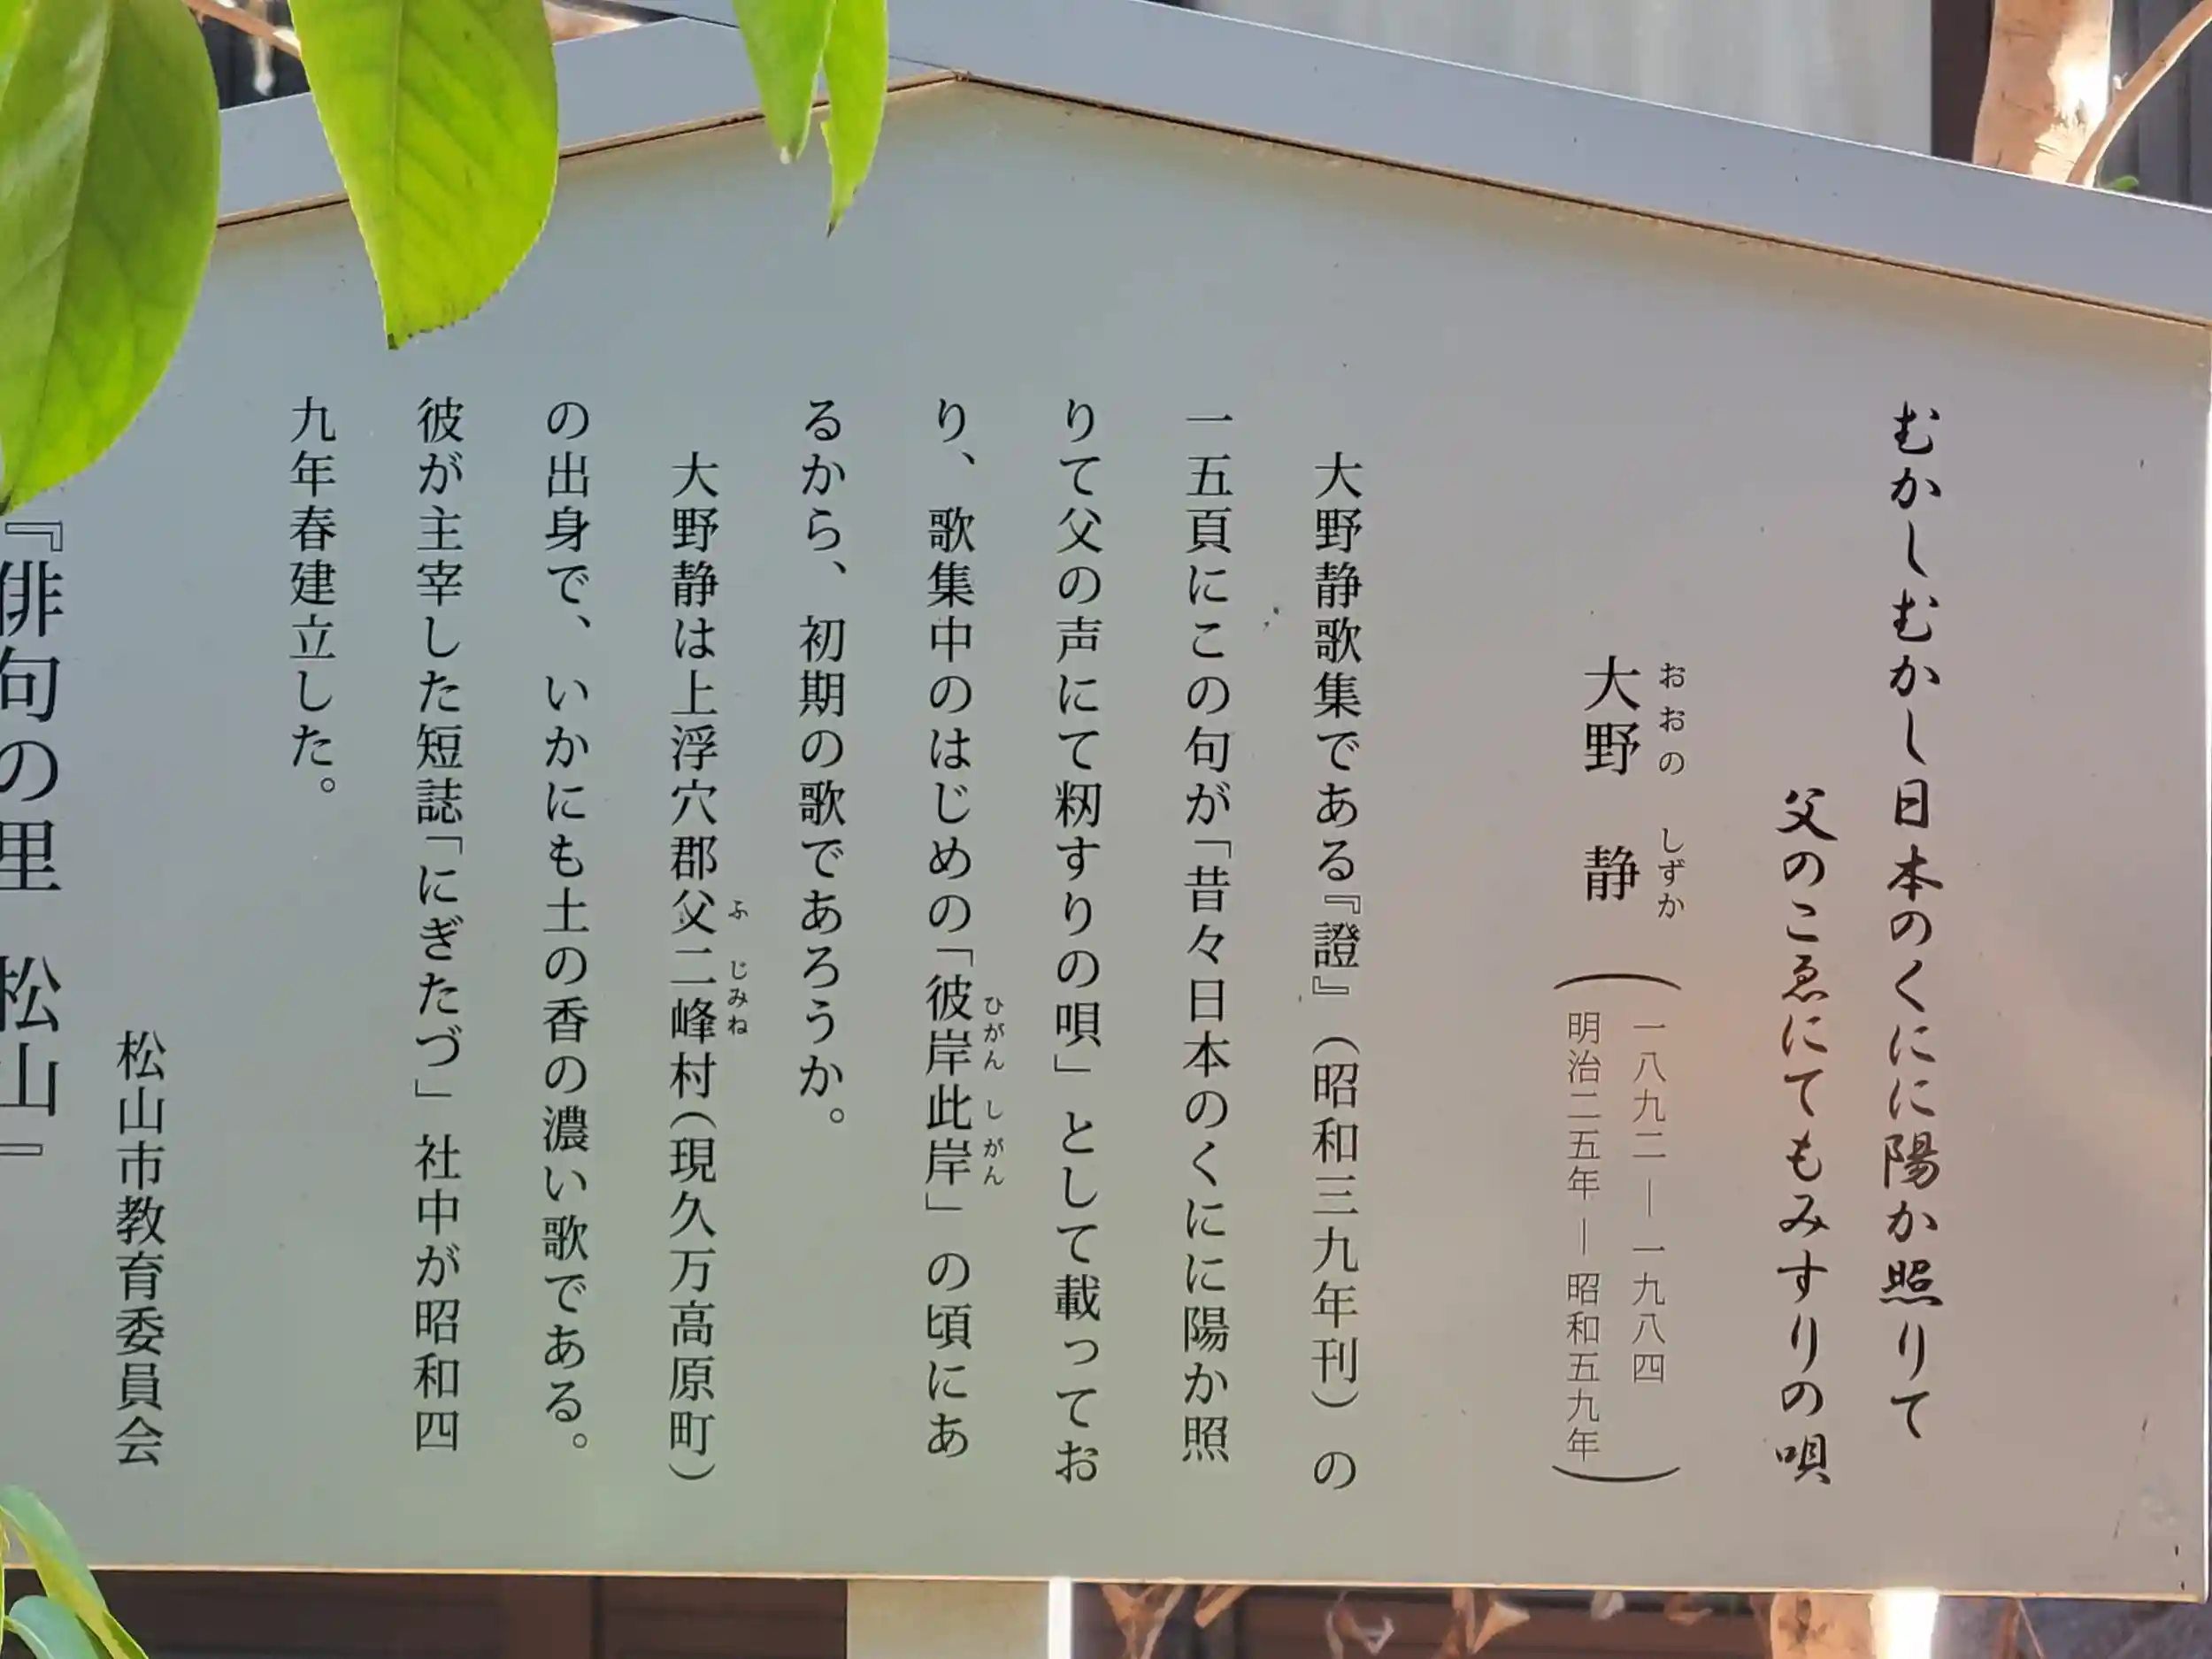 むかしむかし日本のくにに陽か照りて
父のこゑにてもみすりの唄
大野 静
おおの しずか
一八九二―一九八四
明治二五年―昭和五九年
大野静歌集である『證』(昭和三九年刊)の
一五頁にこの句が「昔々日本のくにに陽か照
りて父の声にて籾すりの唄」として載ってお
り、歌集中のはじめの「彼岸此岸」の頃にあ
ひがん しがん
るから、初期の歌であろうか。
大野静は上浮穴郡父二峰村(現久万高原町)
ふじみね
の出身で、いかにも土の香の濃い歌である。
彼が主宰した短誌「にぎたづ」社中が昭和四
九年春建立した。
松山市教育委員会
『俳句の里 松山』